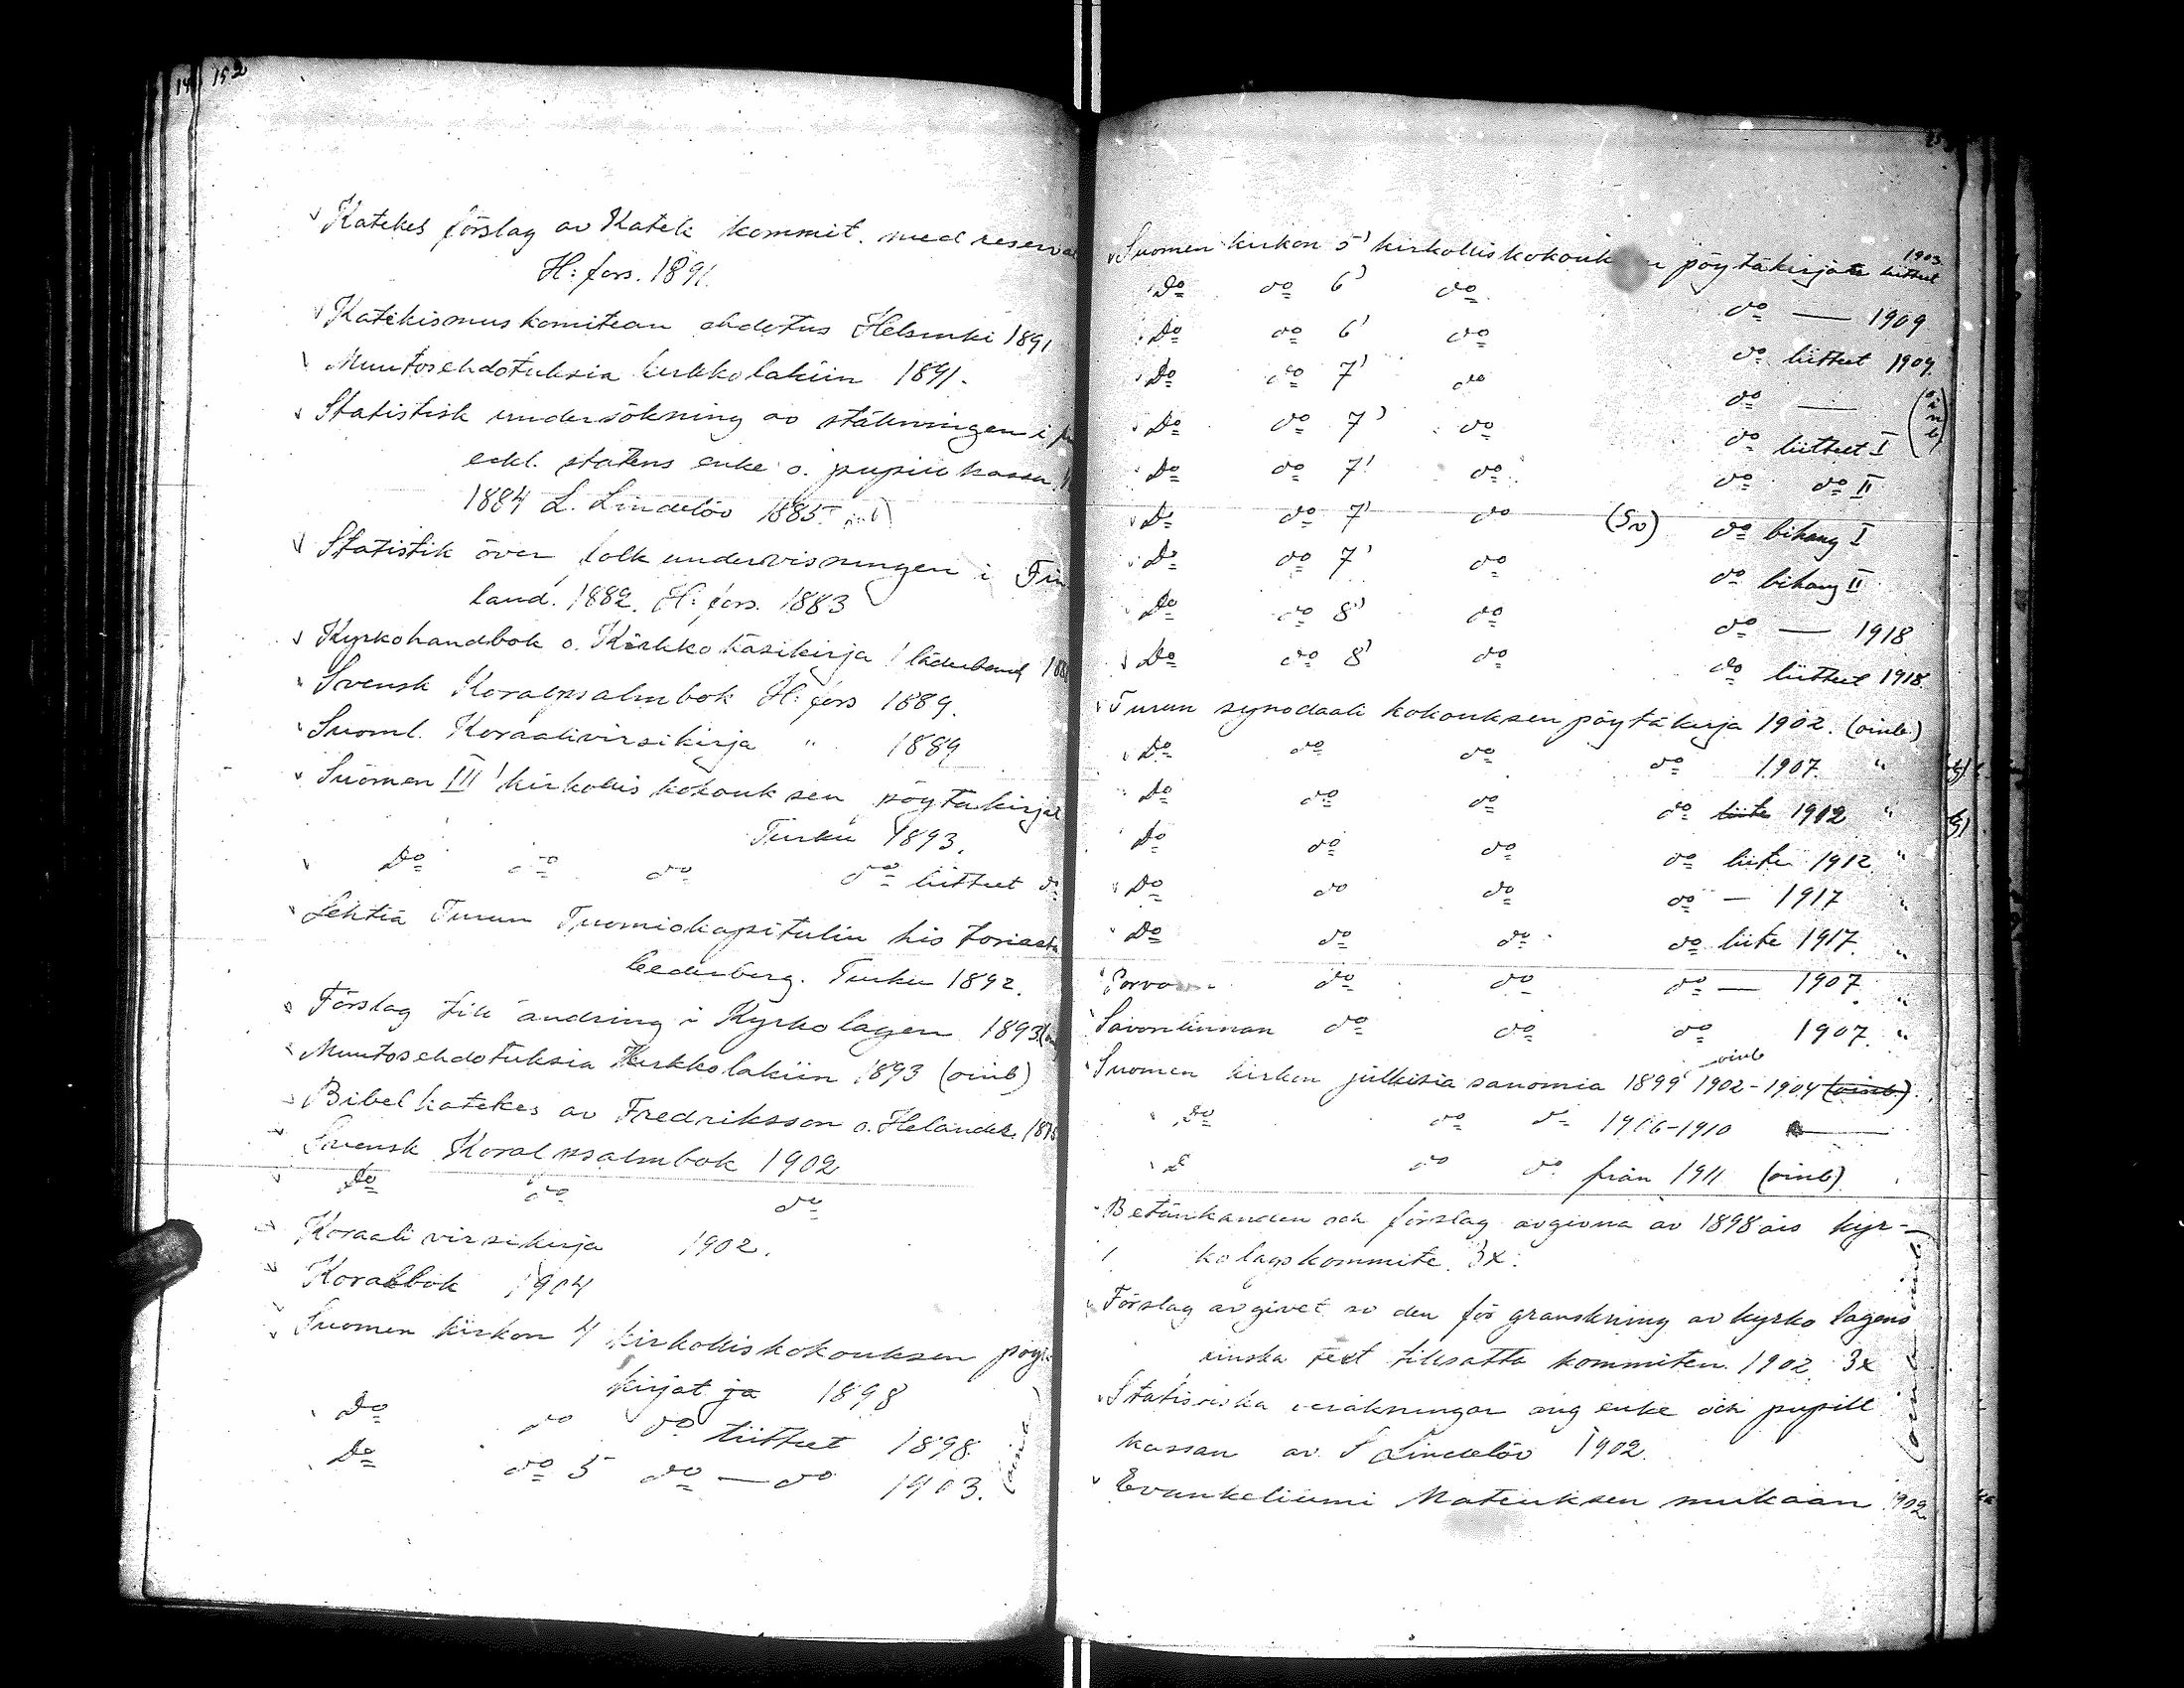 152
Katekes förslag av Katek kommit. med reserva
H:fors. 1891.
Katekismus komitean ehdotus Helsinki 1891
Muutosehdotuksia kirkkolakiin 1891.
Statistisk undersökning av ställningen i
eckl. statens enke o. pupill kassa
1884 L. Lindelöv 1885. inb)
Statistik över folkundervisningen i Fin
land. 1882. H:fors. 1883
Kyrkohandbok o. Kirkko käsikirja i läderband 188
Svensk Koralpsalmbok H:fors 1889.
Suoml. Koraalivirsikirja " 1889
Suomen III' kirkollis kokouksen pöytäkirjat
Turku 1893.
Do do do do liitteet do
Lehtiä Turun Tuomiokapitulin historiasta
Cederberg. Turku 1892.
Förslag till ändring i Kyrkolagen 1893.
Muutosehdotuksia Kirkkolakiin 1893 (oinb)
Bibelkatekes av Fredriksson o. Helander. 18
Svensk Koralpsalmbok 1902
Do do do
Koraali virsikirja 1902.
Koralbok 1904
Suomen kirkon 4 kirkolliskokouksen pöytä
kirjat ja 1898
Do do do liitteet 1898.
Do do 5 do — do 1903.
(oinb)
Suomen kirkon 5' kirkolliskokouksen pöytäkirjate liitteet 1903
Do do 6' do do — 1909
Do do 6' do do liitteet 1909.
Do do 7' do do —
Do do 7' do do liitteet I
(oinb)
Do do 7' do do do II
Do do 7' do (Sv) do bihang I
Do do 7' do do bihang II
Do do 8' do do — 1918
Do do 8' do do liitteet 1918.
Turun synodaali kokouksen pöytäkirja 1902. (oinb.)
Do do do do 1907. "
Do do do do liite 1912 "
Do do do do liite 1912 "
Do do do do — 1917 "
Do do do do liite 1917. "
Porvoon do do do — 1907. "
Savonlinnan do do do 1907. "
Suomen kirkon julkisia sanomia 1899 oinb 1902-1904 (oinb.)
Do do do 1906-1910
D do do från 1911 (oinb)
Betänkanden och förslag avgivna av 1898 års kyr-
kolagskommite. 3x.
Förslag avgivet av den för granskning av kyrko lagens
finska text tillsatta kommiten. 1902. 3x
Statistiska uträkningar ang enke och pupill
kassan av L Lindelöv 1902.
(oinb.)
Evankeliumi Mateuksen mukaan 1902.